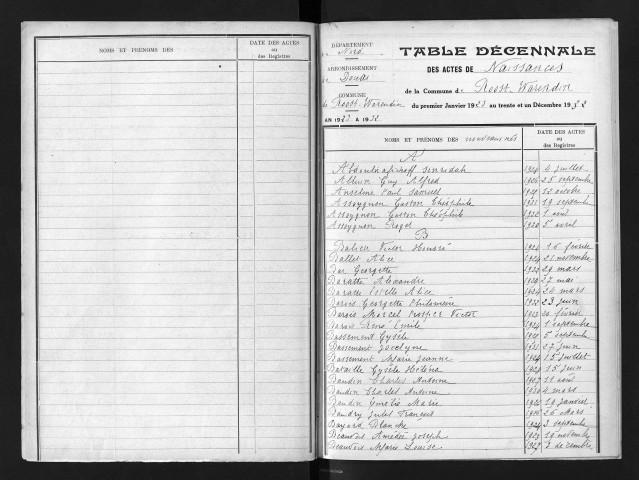 NOMS ET PRÉNOMS DES
DATE DES ACTES
ou
des Registres
DÉPARTEMENT
Nord
ARRONDISSEMENT
Douai
COMMUNE
de Roost-Warendin
AN 1923 A 1932
TABLE DÉCENNALE
DES ACTES DE Naissances
de la Commune de Roost-Warendin
du premier Janvier 1923 au trente et un Décembre 1932
NOMS ET PRÉNOMS DES nouveaux nés
DATE DES ACTES
ou
des Registres
A
4 juillet
Guy Alfred 25 septembre
Anselme Paul Samuel octobre
Assoygnon Gaston Théophile 1931 19 septembre
Assoygnon Gaston Théophile 1 avril
Assoygnon Roger 5 avril
B
Victor 16 février
Ballet Alice 1924 21 novembre
Bar Georgette 29 mars
Baratte Alexandre 27 mai
Baratte Alice 24 mars
Barois Georgette Philomène 23 juin
Barois Marcel Prosper Victor février
Barois René Emile 1 septembre
Bassement Gysèle 5 septembre
Bassement Jocelyne 27 juin
Bassement Marie Jeanne 15 juillet
Bataille Gysèle Héléna 15 juin
Baudin Charles Antoine 11 avril
Baudin Charles Antoine 4 mars
Baudin Marie 19 janvier
Baudry Jules François 26 Mars
Bayard Blanche 3 septembre
Beauvois Amédée Joseph 19 novembre
Beauvois Marie Louise 2 décembre